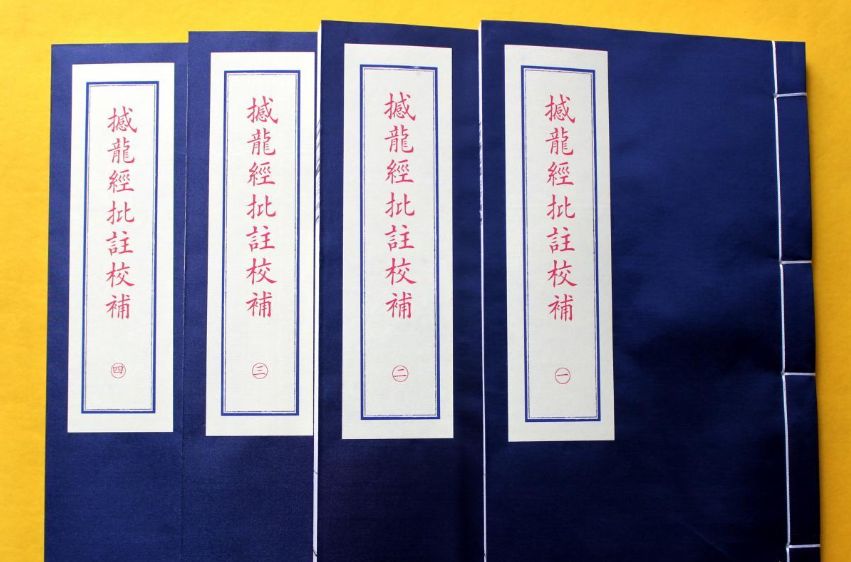 撼龍經批註校補
㊀
撼龍經批註校補
㊁
撼龍經批註校補
㊂
撼龍經批註校補
㊃